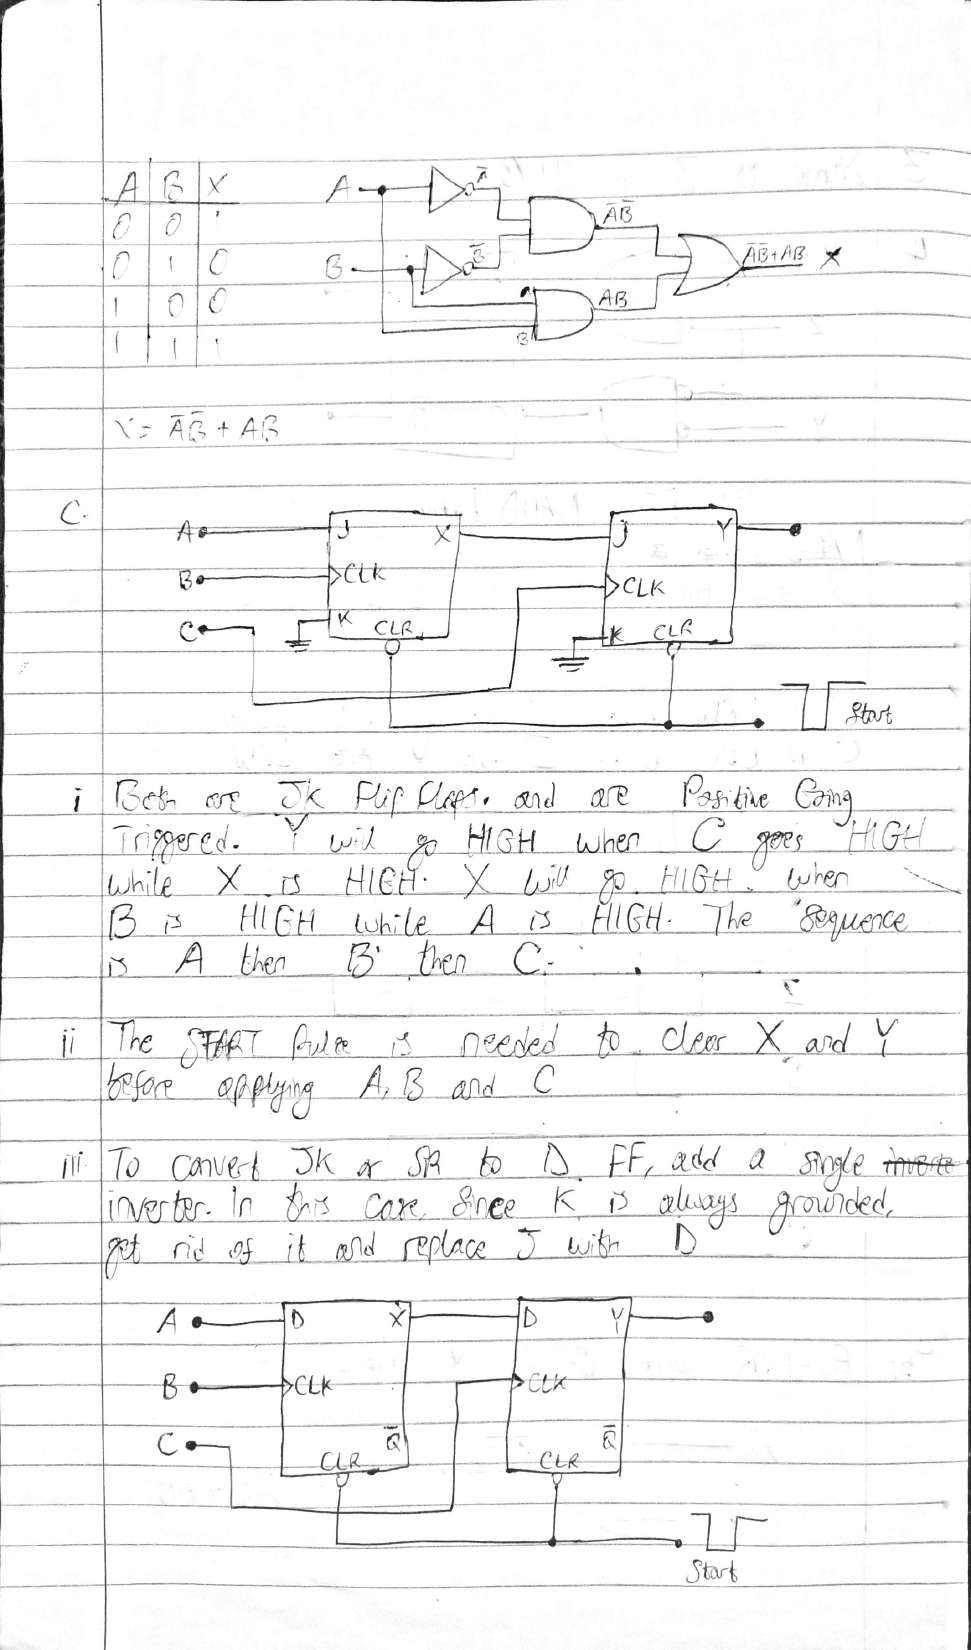 A B X
0 0 1
0 1 0
1 0 0
1 1 1
A Ā ĀB̄
B B̄ ĀB̄+AB X
A AB
B
X = ĀB̄ + AB
C.
A J X J Y
B CLK CLK
C K CLR K CLR
Start
i Both are JK Flip Flops. and are Positive Going
Triggered. Y will go HIGH when C goes HIGH
while X is HIGH. X will go HIGH when
B is HIGH while A is HIGH. The sequence
is A then B then C.
ii The START Pulse is needed to clear X and Y
before applying A, B and C
iii To convert JK or SR to D FF, add a single inverte
inverter. In this case, since K is always grounded,
get rid of it and replace J with D
A D X D Y
B CLK CLK
C Q̄ Q̄
CLR CLR
Start